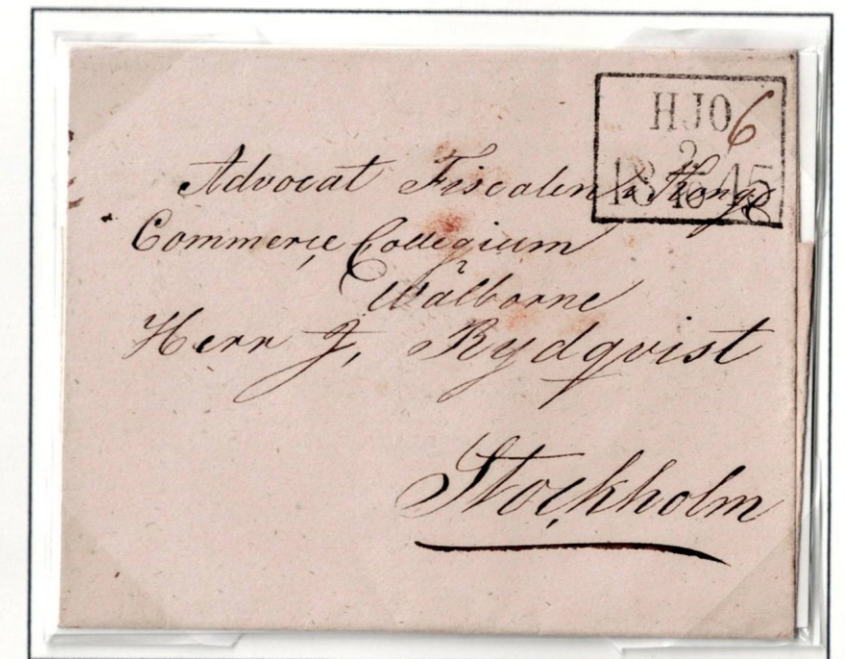 HJO 6
2
1845
Advocat Fiscalen i Kongl
Commerce Collegium
Wälborne
Herr J, Rydqvist
Stockholm